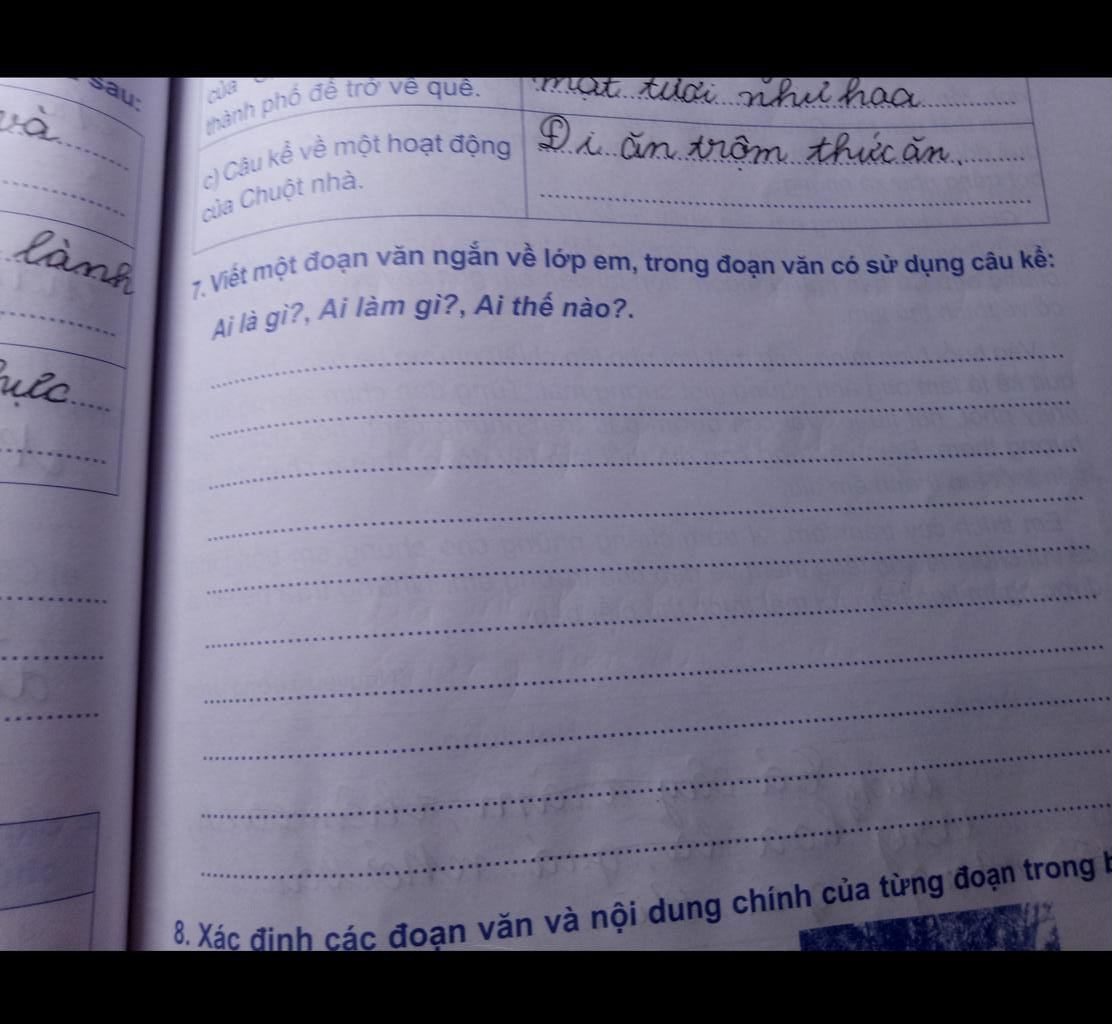 sau:
và
lành
của
thành phố để trở về quê.
mặt tươi như hoa
c) Câu kể về một hoạt động
của Chuột nhà.
Đi ăn trộm thức ăn.
7. Viết một đoạn văn ngắn về lớp em, trong đoạn văn có sử dụng câu kể:
Ai là gì?, Ai làm gì?, Ai thế nào?.
8. Xác định các đoạn văn và nội dung chính của từng đoạn trong